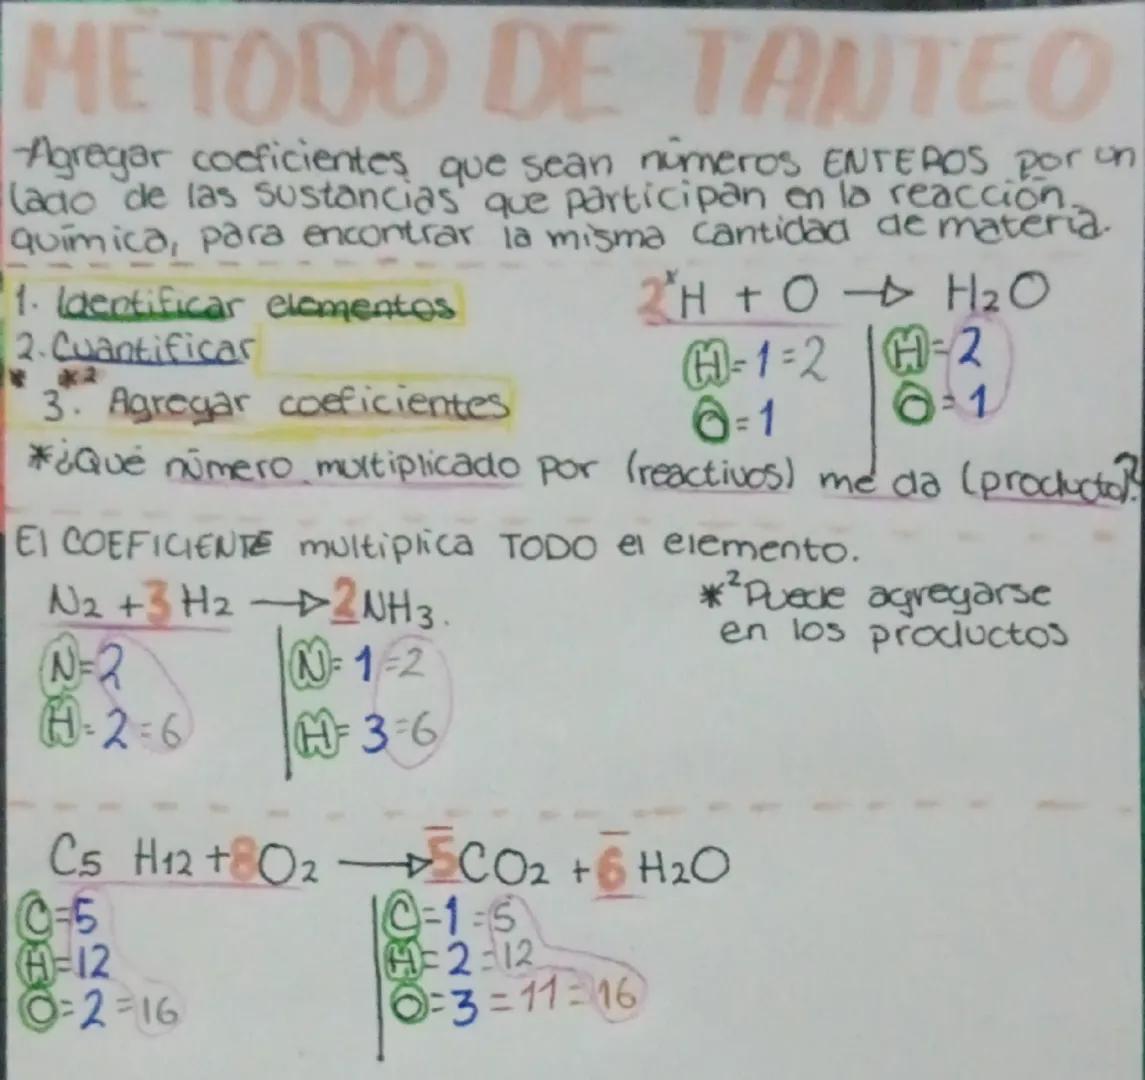 METODO DE TANTEO
-Agregar coeficientes que sean números ENTEROS por un
lado de las sustancias que participan en la reacción
química, para encontrar la misma cantidad de materia.
1. Identificar elementos
2. Cuantificar
* *2
3. Agregar coeficientes
2*H + O → H2O
H=1=2 | H=2
O=1 | O=1
*¿Qué número multiplicado por (reactivos) me da (producto)?
El COEFICIENTE multiplica TODO el elemento.
N2 + 3 H2 → 2 NH3.
N=2 | N=1=2
H=2=6 | H=3=6
*² Puede agregarse
en los productos
C5 H12 + 8O2 → 5CO2 + 6 H2O
C=5 | C=1=5
H=12 | H=2=12
O=2=16 | O=3=11=16